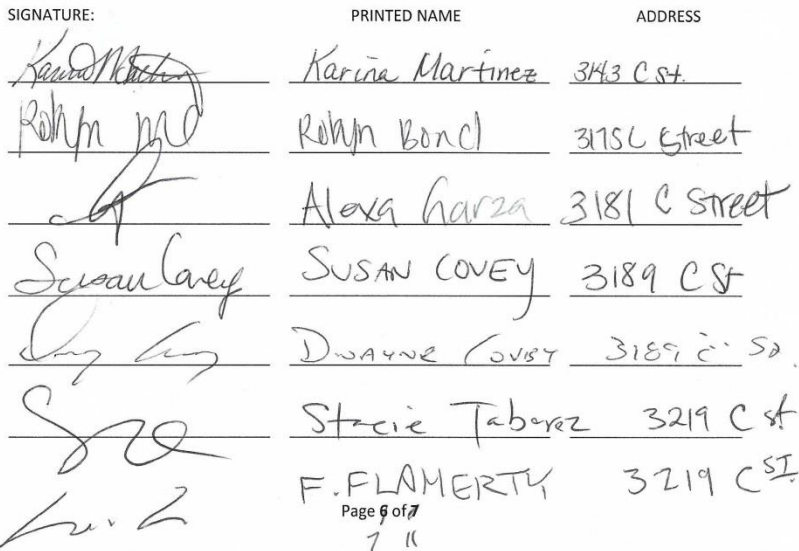 SIGNATURE: PRINTED NAME ADDRESS
Karina Martinez 3143 C St.
Robyn Robyn Bond 3175 C Street
Alexa Garza 3181 C Street
Susan Covey SUSAN COVEY 3189 C St
DWAYNE COVEY 3189 C
Stacie Tabarez 3219 C st
F. FLAHERTY 3219 C ST
Page 6 of 7
7 11